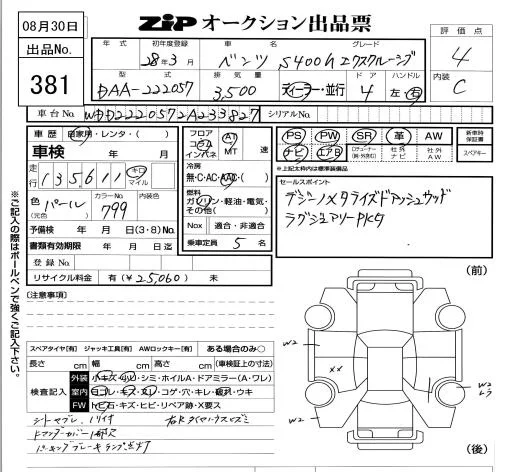 08月30日
出品No.
381
ZIP オークション出品票
評価点
4
内装
C
年式 初年度登録 車名 グレード
28年3月 ベンツ S400h エクスクルーシブ
型式 排気量 ドア ハンドル
DAA-222057 3,500 ディーラー・並行 4 左・右
車台No. WDD2220572A233827 シリアルNo.
車歴 自家用・レンタ・( )
車検 年 月
走行 135,611 キロ マイル
色 パール カラーNo. 799 内装色
(元色)
予備検 年 月 日(3・8)No.
書類有効期限 年 月 日迄
登録No.
リサイクル料金 有(¥25,060) 未
フロア コラム インパネ AT MT 速
冷房
無・C・AC・AAC・( )
燃料
ガソリン・軽油・電気・その他( )
Nox 適合・非適合
乗車定員 5 名
PS PW SR 革 AW
ナビ エアB 社外ナビ 社外AW
新車時保証書
スペアキー
*上記太枠内は標準装備品
セールスポイント
ラグジュアリーPKG
(前)
〔注意事項〕
スペアタイヤ[有] ジャッキ工具[有] AWロックキー[有] ある場合のみ○
長さ cm 幅 cm 高さ cm (車検証上の寸法)
検査記入
外装 小キズ・凹・シミ・ホイルA・ドアミラー(A・ワレ)
室内 ヨゴレ・キズ・スレ・コゲ・穴・キレ・破れ・ウキ
FW トビ石・キズ・ヒビ・リペア跡・X要ス
パーキングブレーキランプ点灯
W2
W2
××
W2
W2
(後)
※ご記入の際はボールペンで強くご記入下さい。